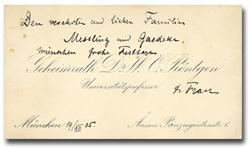 Den verehrten und lieben Familien
Messling und Gaedeke
wünschen frohe Festtage
Geheimrath Dr. W. C. Röntgen
Universitätsprofessor
u. Frau
München
Äussere Prinzregentenstr. 1